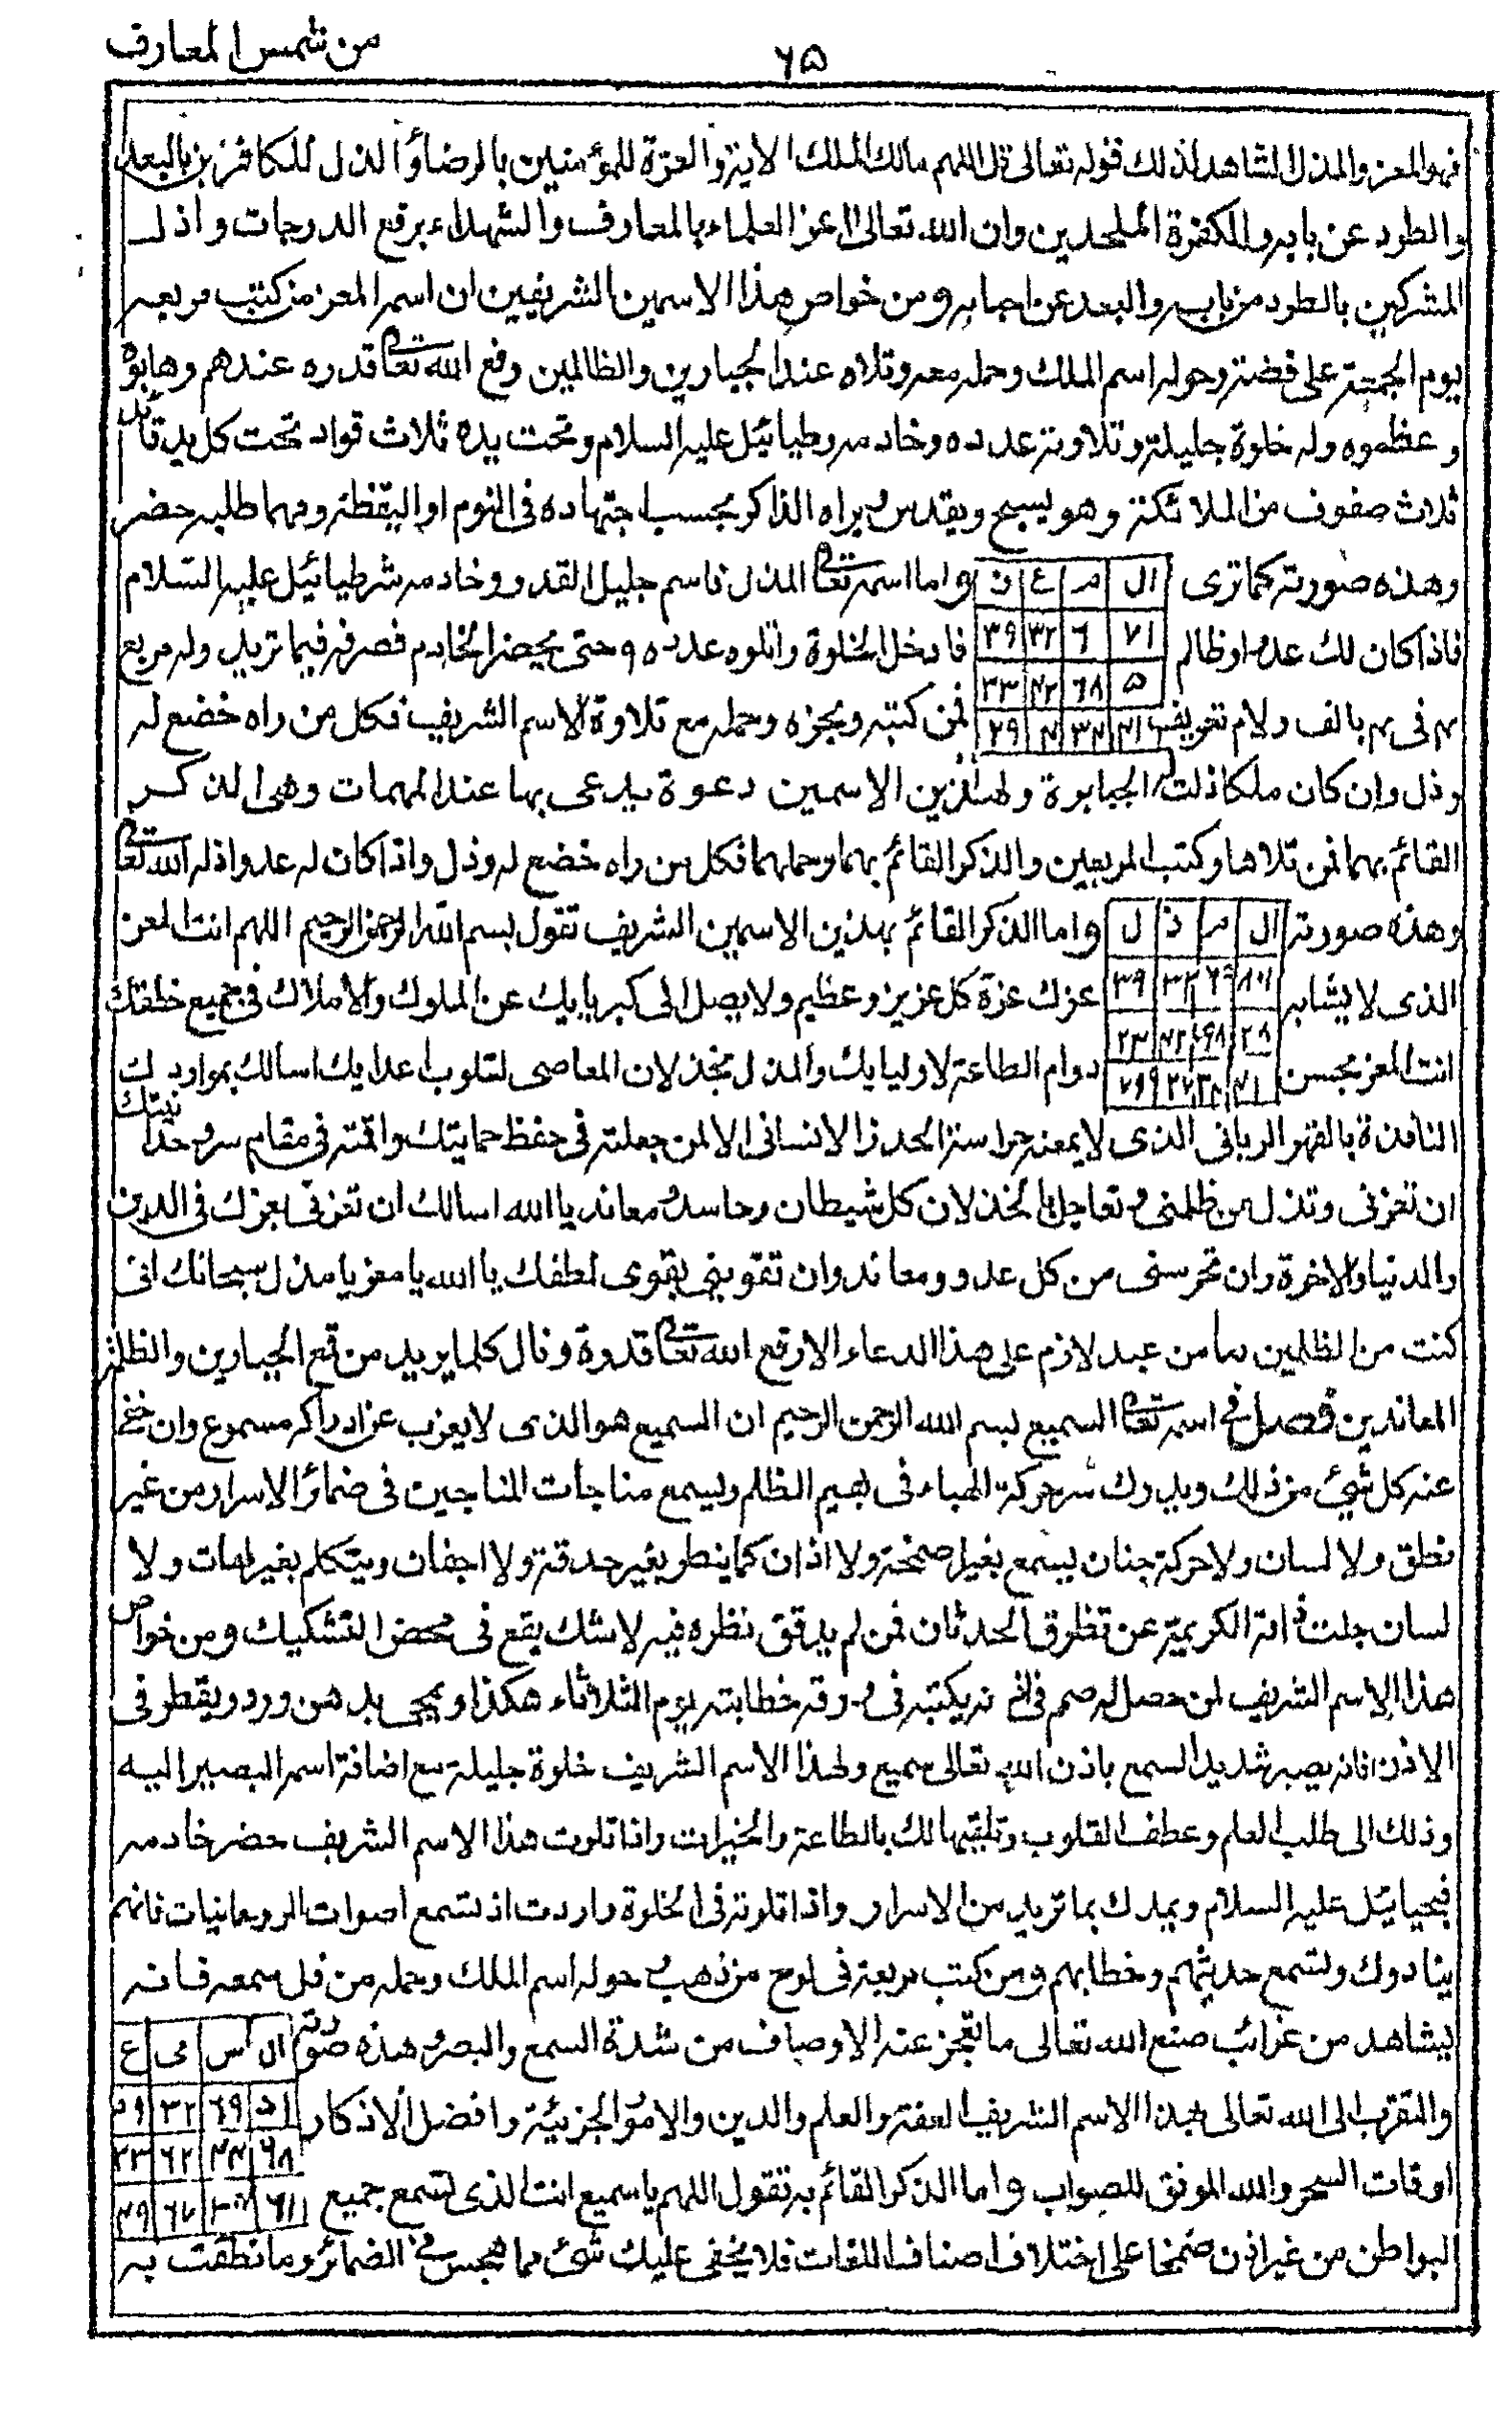 ٦٥
من شمس المعارف
فهو المعز والمذل الشاهد لذلك قوله تعالى قل اللهم مالك الملك الاية والعزة للمؤمنين بالرضا والذل للكافرين بالبعد
والطرد عن بابه والكفرة الملحدين وان الله تعالى اعز العلماء بالمعارف والشهداء برفع الدرجات واذل
المشركين بالطرد من بابه والبعد عن احبابه ومن خواص هذا الاسمين الشريفين ان اسمه المعز من كتب مربعه
يوم الجمعة على فضة وحوله اسم الملك وحمله معه وتلاه عند الجبارين والظالمين رفع الله تعالى قدره عندهم وهابوه
وعظموه وله خلوة جليلة وتلاوته عدده وخادمه وطيائيل عليه السلام وتحت يده ثلاث قواد تحت كل يد قائد
ثلاث صفوف من الملائكة وهو يسبح ويقدس يراه الذاكر بحسب اجتهاده في النوم او اليقظة ومهما طلبه حضر
وهذه صورته كما ترى
ال م ع ز
٧١ ٦ ٣٢ ٣٩
٥ ٦٨ ٤٢ ٣٣
٤١ ٣٤ ٤ ٢٩
واما اسمه تعالى المذل فاسم جليل القدر وخادمه شرطيائيل عليه السلام
فاذا كان لك عدو او ظالم فادخل الخلوة واتلوه عدده وحتى يحضر الخادم فصرفه فيما تريد وله مربع
بالف ولام تعريف فمن كتبه وبجزه وحمله مع تلاوة الاسم الشريف فكل من راه خضع له
وذل وان كان ملكا ذلت الجبابرة ولهذين الاسمين دعوة يدعى بها عند المهمات وهى الذكر
القائم بهما فمن تلاها وكتب المربعين والذكر القائم بهما وحملهما فكل من راه خضع له وذل واذا كان له عدو اذله الله تعالى
وهذه صورته
ال م ذ ل
٣٢ ٣٩
واما الذكر القائم بهذين الاسمين الشريف تقول بسم الله الرحمن الرحيم اللهم انت المعز
الذى لا يشابه عزك عزة كل عزيز وعظيم ولا يصل الى كبريايك عن الملوك والاملاك في جميع خلقتك
انت المعز بحسن دوام الطاعة لاوليايك والمذل بخذلان المعاصى لقلوب اعدايك اسالك بمواردك
النافذة بالقهر الربانى الذى لا يمنعه حراسة الحذر الانسانى الا لمن جعلته في حفظ حمايتك واقمته في مقام سر
ان تعزنى وتذل من ظلمنى وتعاجل بالخذلان كل شيطان وحاسد ومعاند يا الله اسالك ان تعزنى بعزك في الدين
والدنيا والاخرة وان تحرسنى من كل عدو ومعاند وان تقوينى بقوى لطفك يا الله يا معز يا مذل سبحانك انى
كنت من الظلمين ما من عبد لازم على هذا الدعاء الا رفع الله تعالى قدره ونال كلما يريد من قمع الجبارين والظلمة
المعاندين فصل في اسمه تعالى السميع بسم الله الرحمن الرحيم ان السميع هو الذى لا يعزب عن ادراكه مسموع وان خفى
عنه كل شئ من ذلك ويدرك سر حركة الهباء في بهيم الظلم ويسمع مناجات المناجين في ضمائر الاسرار من غير
نطق ولا لسان ولا حركة جنان يسمع بغير اصمخة ولا اذان كما ينظر بغير حدقة ولا اجفان ويتكلم بغير لهات ولا
لسان جلت ذاته الكريمة عن تطرق الحدثان فمن لم يدقق نظره فيه لاشك يقع في محض التشكيك ومن خواص
هذا الاسم الشريف لمن حصل له صمم في اذنه يكتبه في ورقة خطابته يوم الثلاثاء هكذا ويمحى بدهن ورد ويقطر في
الاذن فانه يصير شديد السمع باذن الله تعالى سميع ولهذا الاسم الشريف خلوة جليلة مع اضافة اسمه البصير اليه
وذلك الى طلب العلم وعطف القلوب وتلقيها لك بالطاعة والخيرات واذا تلوت هذا الاسم الشريف حضر خادمه
عليه السلام ويمدك بما تريد من الاسرار واذا تلوته في الخلوة واردت ان تسمع اصوات الروحانيات فانهم
ينادوك وتسمع حديثهم وخطابهم ومن كتب مربعة في لوح من ذهب حوله اسم الملك وحمله من قل سمعه فانه
يشاهد من غرائب صنع الله تعالى ما تعجز عنه الاوصاف من شدة السمع والبصر وهذه صورته
ال س مى ع
٦٩ ٣٢
٦٨ ٤٤ ٦٢ ٢٣
والتقرب الى الله تعالى بهذا الاسم الشريف العفة والعلم والدين والامور الجزئية وافضل الاذكار
اوقات السحر والله الموفق للصواب واما الذكر القائم به تقول اللهم يا سميع انت الذى تسمع جميع
البواطن من غير اذن ضمخا على اختلاف اصناف اللغات فلا يخفى عليك شئ مما هجس في الضمائر وما نطقت به